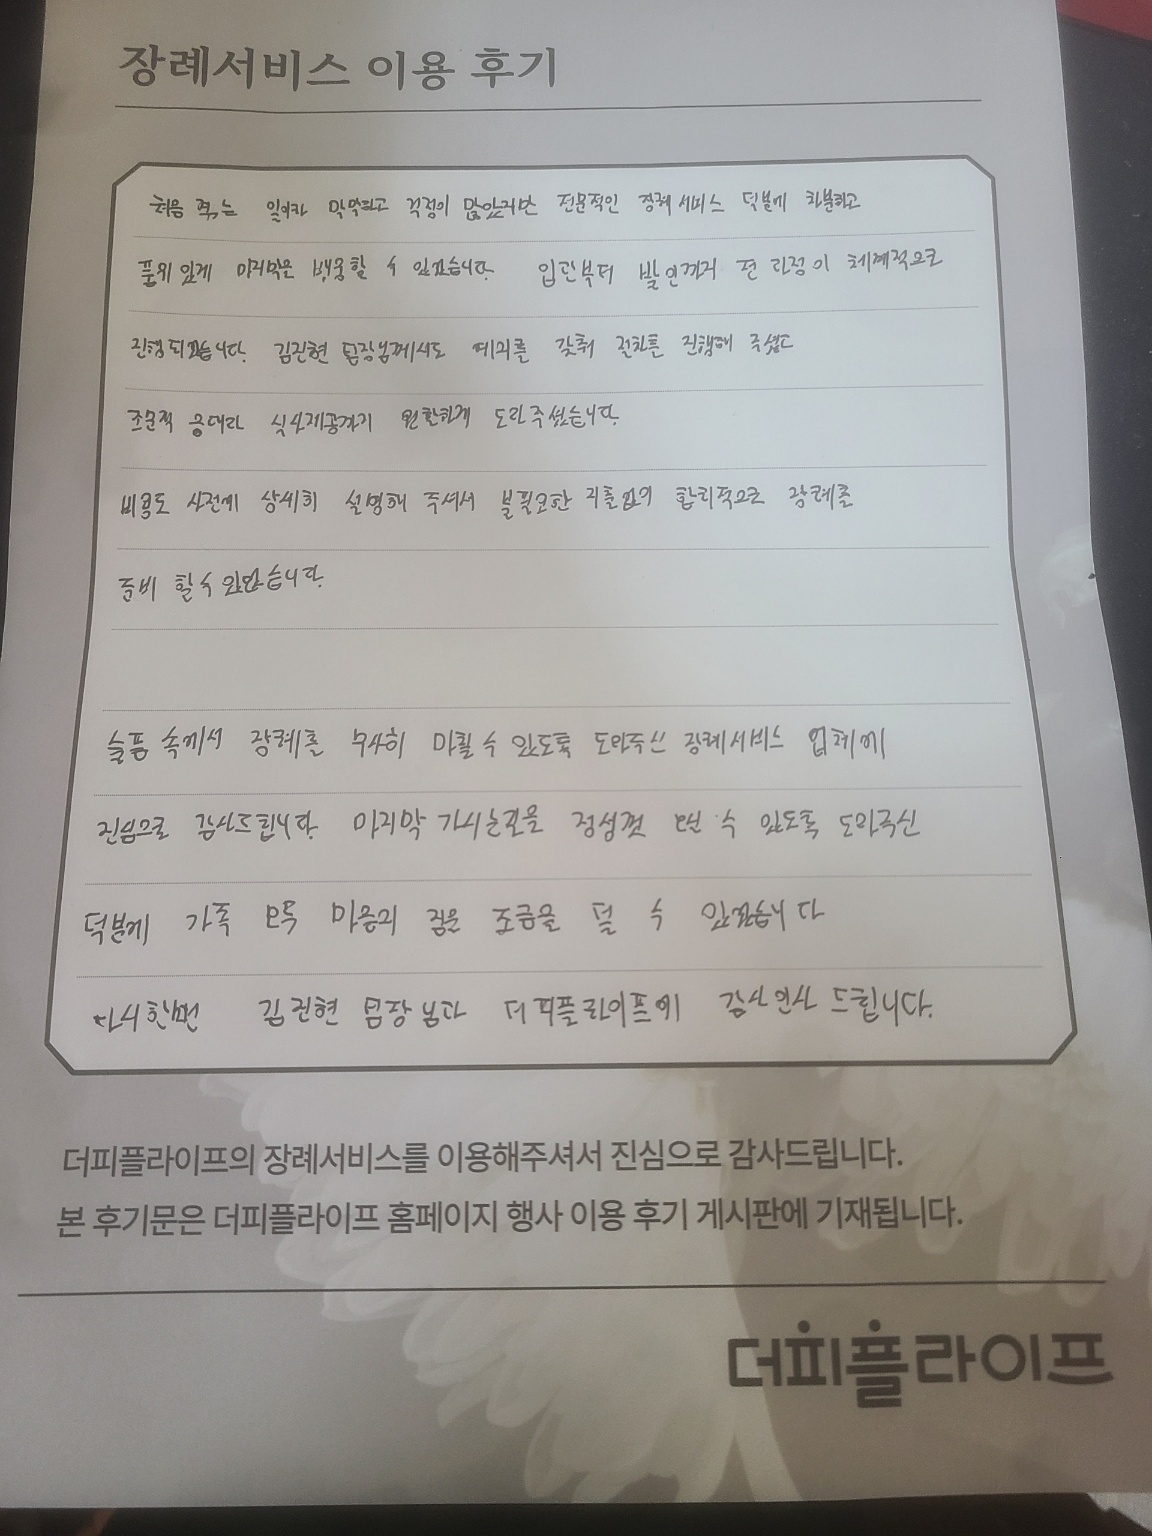 장례서비스 이용 후기
처음 겪는 일이라 막막하고 걱정이 많았지만 전문적인 장례 서비스 덕분에 차분하고
품위 있게 마지막을 배웅할 수 있었습니다. 입관부터 발인까지 전 과정이 체계적으로
진행되었습니다. 김진현 팀장님께서도 예의를 갖춰 절차를 진행해 주셨고
조문객 응대와 식사제공까지 원활하게 도와주셨습니다.
비용도 사전에 상세히 설명해 주셔서 불필요한 지출없이 합리적으로 장례를
준비 할수 있었습니다.
슬픔 속에서 장례를 무사히 마칠 수 있도록 도와주신 장례서비스 업체에
진심으로 감사드립니다. 마지막 가시는길을 정성껏 모실 수 있도록 도와주신
덕분에 가족 모두 마음의 짐을 조금을 덜 수 있었습니다
다시한번 김진현 팀장님과 더피플라이프에 감사인사 드립니다.
더피플라이프의 장례서비스를 이용해주셔서 진심으로 감사드립니다.
본 후기문은 더피플라이프 홈페이지 행사 이용 후기 게시판에 기재됩니다.
더피플라이프